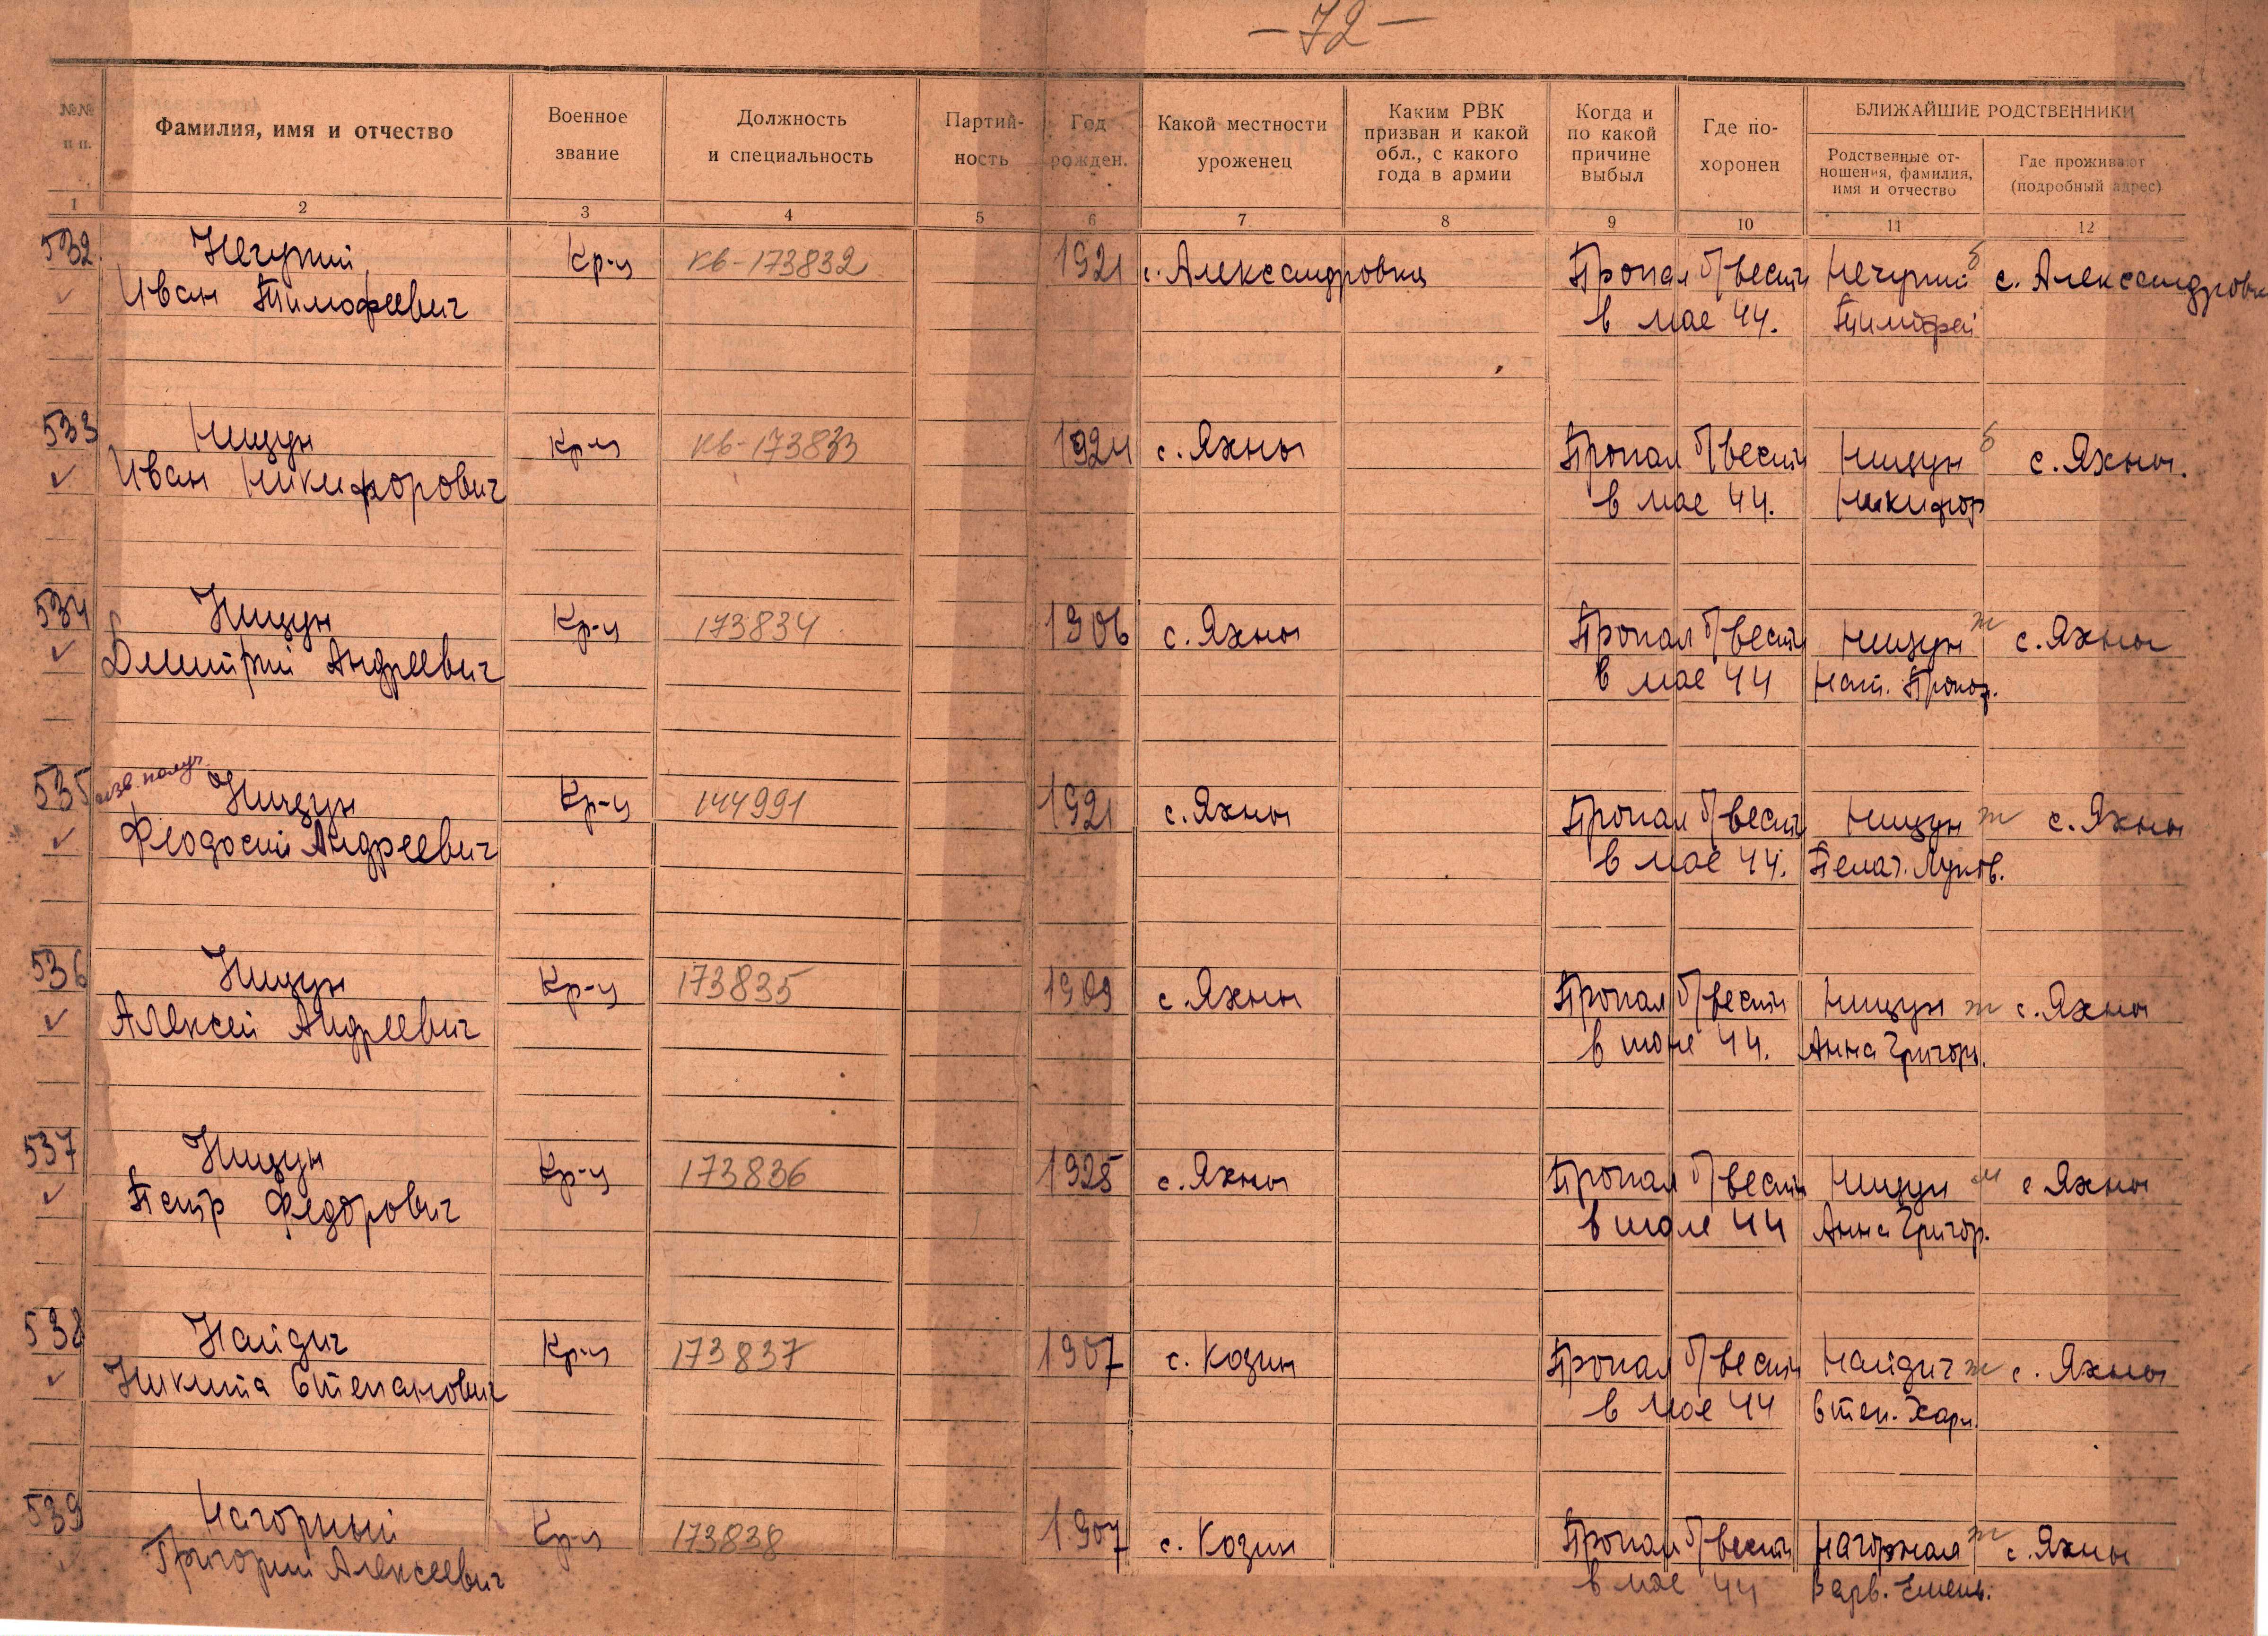 — 72 —
№№ п п.
Фамилия, имя и отчество
Военное звание
Должность и специальность
Партий-ность
Год рожден.
Какой местности уроженец
Каким РВК призван и какой обл., с какого года в армии
Когда и по какой причине выбыл
Где по-хоронен
БЛИЖАЙШИЕ РОДСТВЕННИКИ
Родственные от-ношения, фамилия, имя и отчество
Где проживают (подробный адрес)
1 2 3 4 5 6 7 8 9 10 11 12
532 Нечупий Кр-ц кв-173832 1921 с. Александровка Пропал б/вести Нечупий б с. Александровка
Иван Тимофеевич в мае 44. Тимофей
533 Ницун Кр-ц кв-173833 1924 с. Яхны Пропал б/вести Ницун б с. Яхны.
Иван Никифорович в мае 44. Никифор
534 Ницун Кр-ц 173834 1906 с. Яхны Пропал б/вести Ницун ж с. Яхны
Дмитрий Андреевич в мае 44 Нат. Прокоф.
535 изв. получ. Ницун Кр-ц 144991 1921 с. Яхны Пропал б/вести Ницун ж с. Яхны
Феодосий Андреевич в мае 44. Пелаг. Луков.
536 Ницун Кр-ц 173835 1909 с. Яхны Пропал б/вести Ницун ж с. Яхны
Алексей Андреевич в июне 44. Анна Григор.
537 Ницун Кр-ц 173836 1925 с. Яхны Пропал б/вести Ницун м с Яхны
Петр Федорович в июле 44 Анна Григор.
538 Найдич Кр-ц 173837 1907 с. Козин Пропал б/вести Найдич ж с. Яхны
Никита Степанович в мае 44 Степ. Харл.
539 Нагорный Кр-ц 173838 1907 с. Козин Пропал б/вести Нагорная ж с. Яхны
Григорий Алексеевич в мае 44 Варв. Емельян.